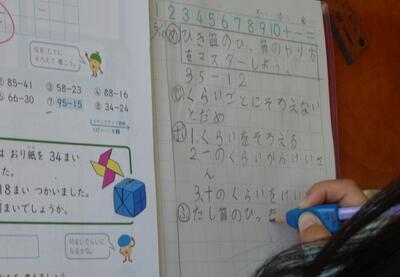 位を たてに
そろえて 書こう。
② 85−41 ③ 58−23 ④ 88−16
⑥ 66−30 ⑦ 95−15 ⑧ 34−24
は おり紙を 34まい
た。
18まい つかいました。
まいでしょうか。
1 2 3 4 5 6 7 8 9 10 + − =
め ひき算のひっ算のやり方
をマスターしよう。
35−12
くらいごとにそろえない
とだめ
1.くらいをそろえる
2.一のくらいからけいさ
ん
3.十のくらいをけい
たし算のひっ